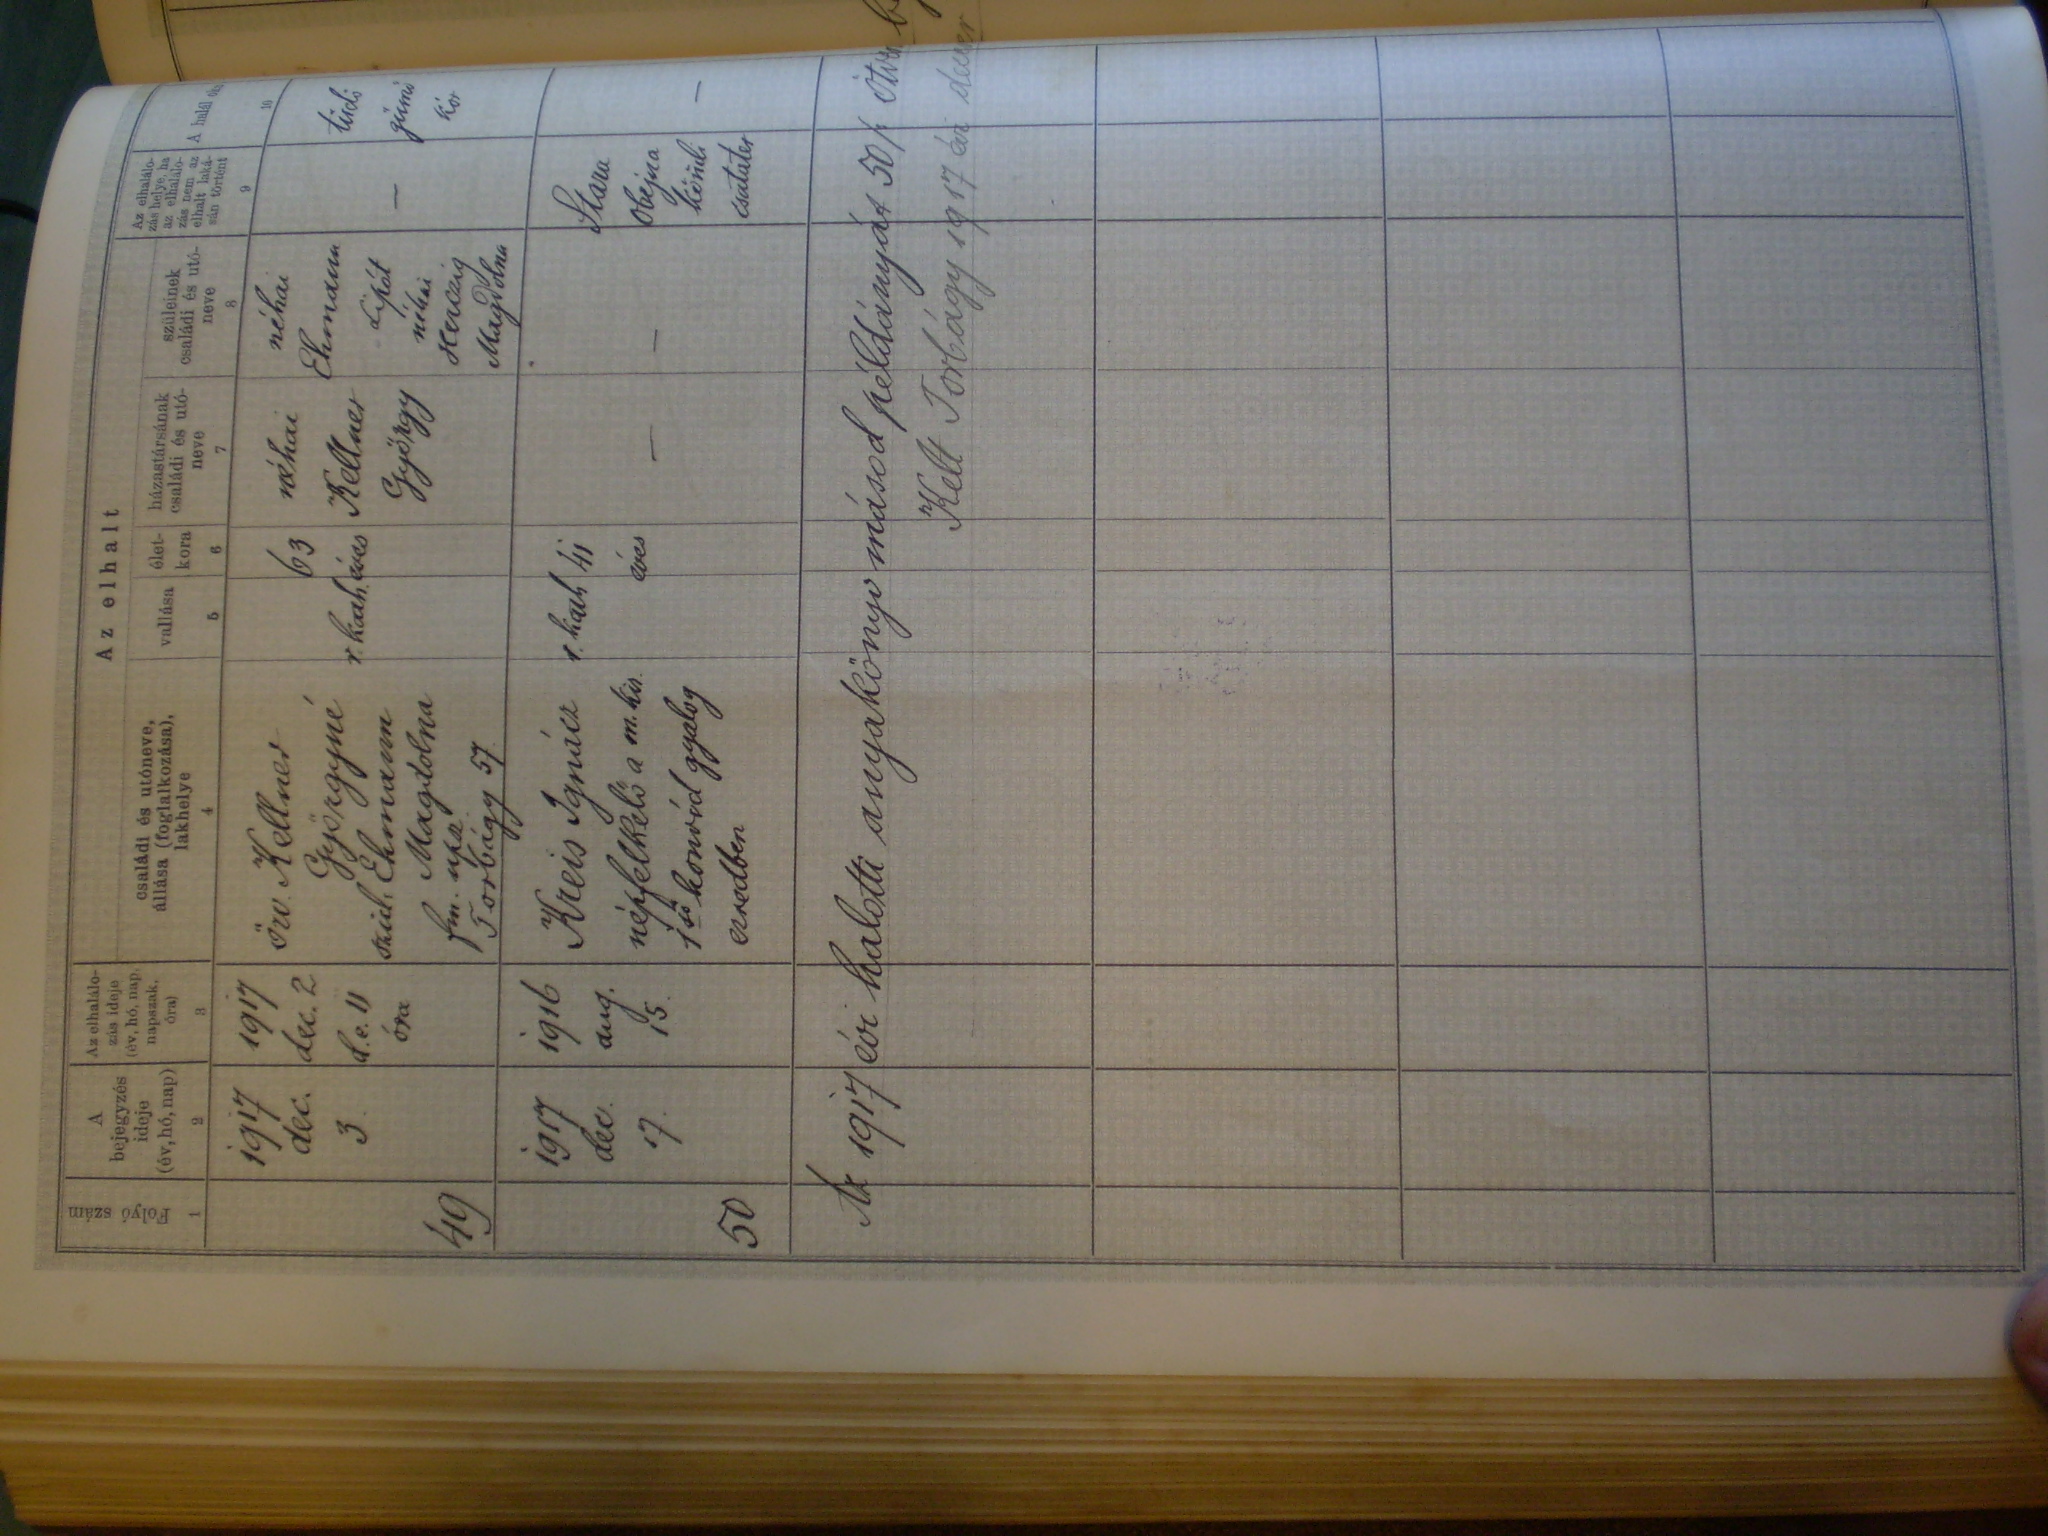 Az elhalt
Folyó szám
A bejegyzés ideje (év, hó, nap)
Az elhalálozás ideje (év, hó, nap, napszak, óra)
családi és utóneve, állása (foglalkozása), lakhelye
vallása
életkora
házastársának családi és utóneve
szüleinek családi és utóneve
Az elhalálozás helye, ha az elhalálozás nem az elhalt lakásán történt
A halál
1 2 3 4 5 6 7 8 9 10
49
1917
dec.
3.
1917
dec. 2
d.e. 11
óra
özv. Kellner
Györgyné
szül. Ehmann
Magdolna
Torbágy 57.
r. kath.
63
éves
néhai
Kellner
György
néhai
Ehmann
Lipót
néhai
Herczig
Magdolna
—
tüdő
gümő
kór
50
1917
dec.
17.
1916
aug.
15.
Kreis Ignácz
népfelkelő a m. kir.
1ső honvéd gyalog
ezredben
r. kath.
41
éves
—
—
Stara
Obejna
körüli
csatatér
—
Az 1917 évi halotti anyakönyv másod példányát 50
Kelt Torbágy 1917 évi